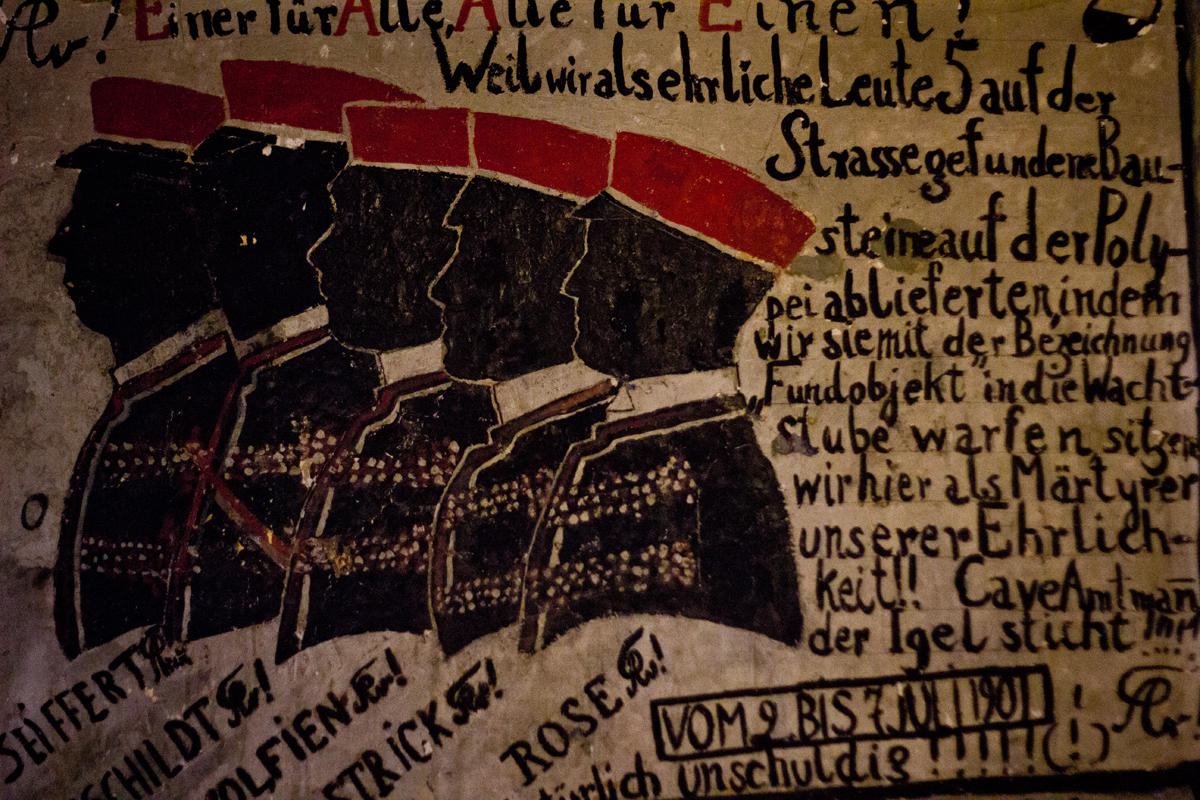 ! Einer für Alle, Alle für Einen!
Weil wir als ehrliche Leute 5 auf der
Strasse gefundene Bau-
steine auf der Poly-
pei ablieferten, indem
wir sie mit der Bezeichnung
„Fundobjekt" in die Wacht-
stube warfen, sitzen
wir hier als Märtyrer
unserer Ehrlich-
keit!! Cave Amtman̅
der Igel sticht
SEIFFERT
SCHILDT !
OLFIEN !
STRICK !
ROSE !
VOM 2. BIS 7. JULI 1901
türlich unschuldig !!!!!(!)